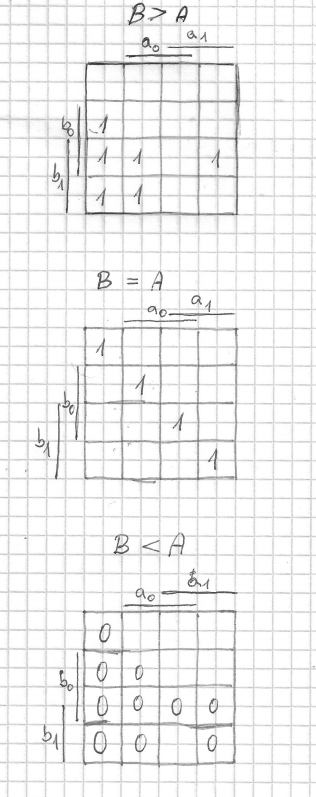 B > A
a0 a1
b0 1
1 1 1
b1 1 1
B = A
a0 a1
1
1
b0 1
b1 1
B < A
a0 a1
0
b0 0 0
0 0 0 0
b1 0 0 0